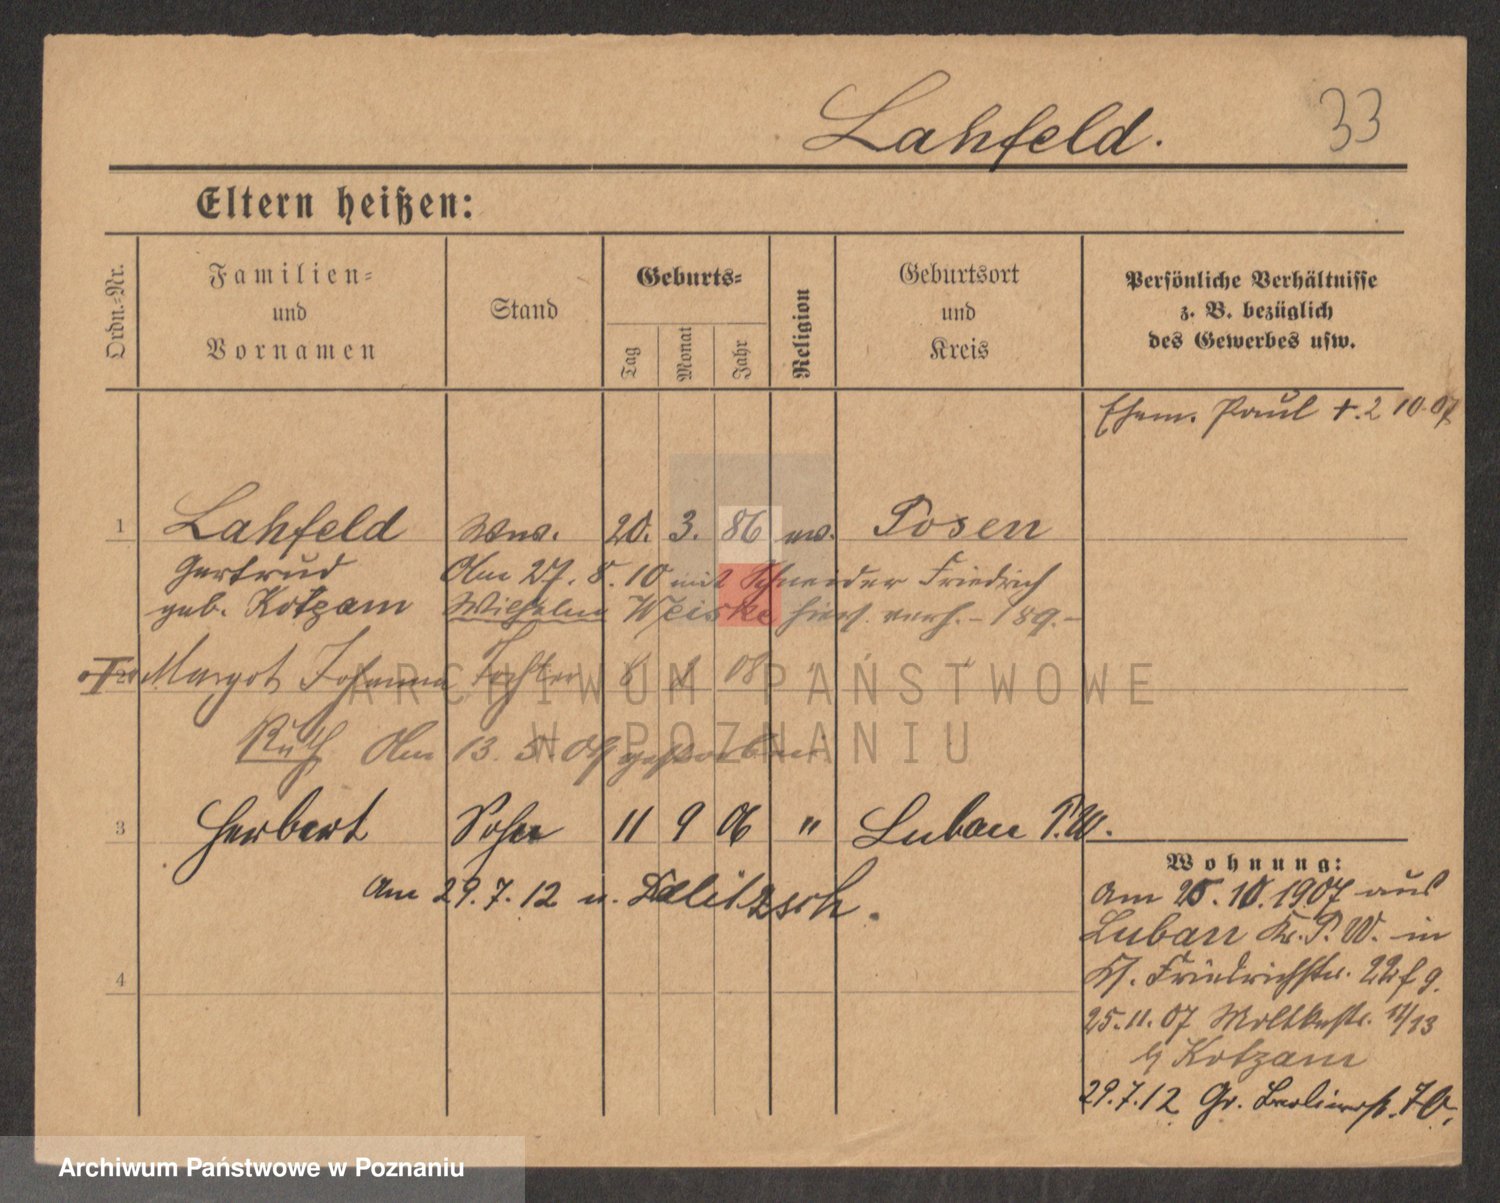 Lahfeld.
33
Eltern heißen:
Ordn.-Nr.
Familien-
und
Vornamen
Stand
Geburts-
Tag
Monat
Jahr
Religion
Geburtsort
und
Kreis
Persönliche Verhältnisse
z. B. bezüglich
des Gewerbes usw.
Ehem. Paul +. 2 10. 07
1 Lahfeld Wwe. 20. 3. 86 ev. Posen
Gertrud Am 27. 8. 10 mit Schneider Friedrich
geb. Kotzam Wilhelm Weiske hier verh. - 189. -
Margot Johanna Tochter 08 "
Ruth Am 13. 5. 09 gestorben
3 Herbert Sohn 11 9 06 " Luban P.W.
Am 29. 7. 12 n. Delitzsch.
4
Wohnung:
Am 25. 10. 1907 aus
Luban Kr. P. W. in
Friedrichstr. 22
25. 11. 07 Moltkestr. 11/13
b/ Kotzam
29. 7. 12 Gr. Berlinerstr. 70.
ARCHIWUM PAŃSTWOWE
W POZNANIU
Archiwum Państwowe w Poznaniu